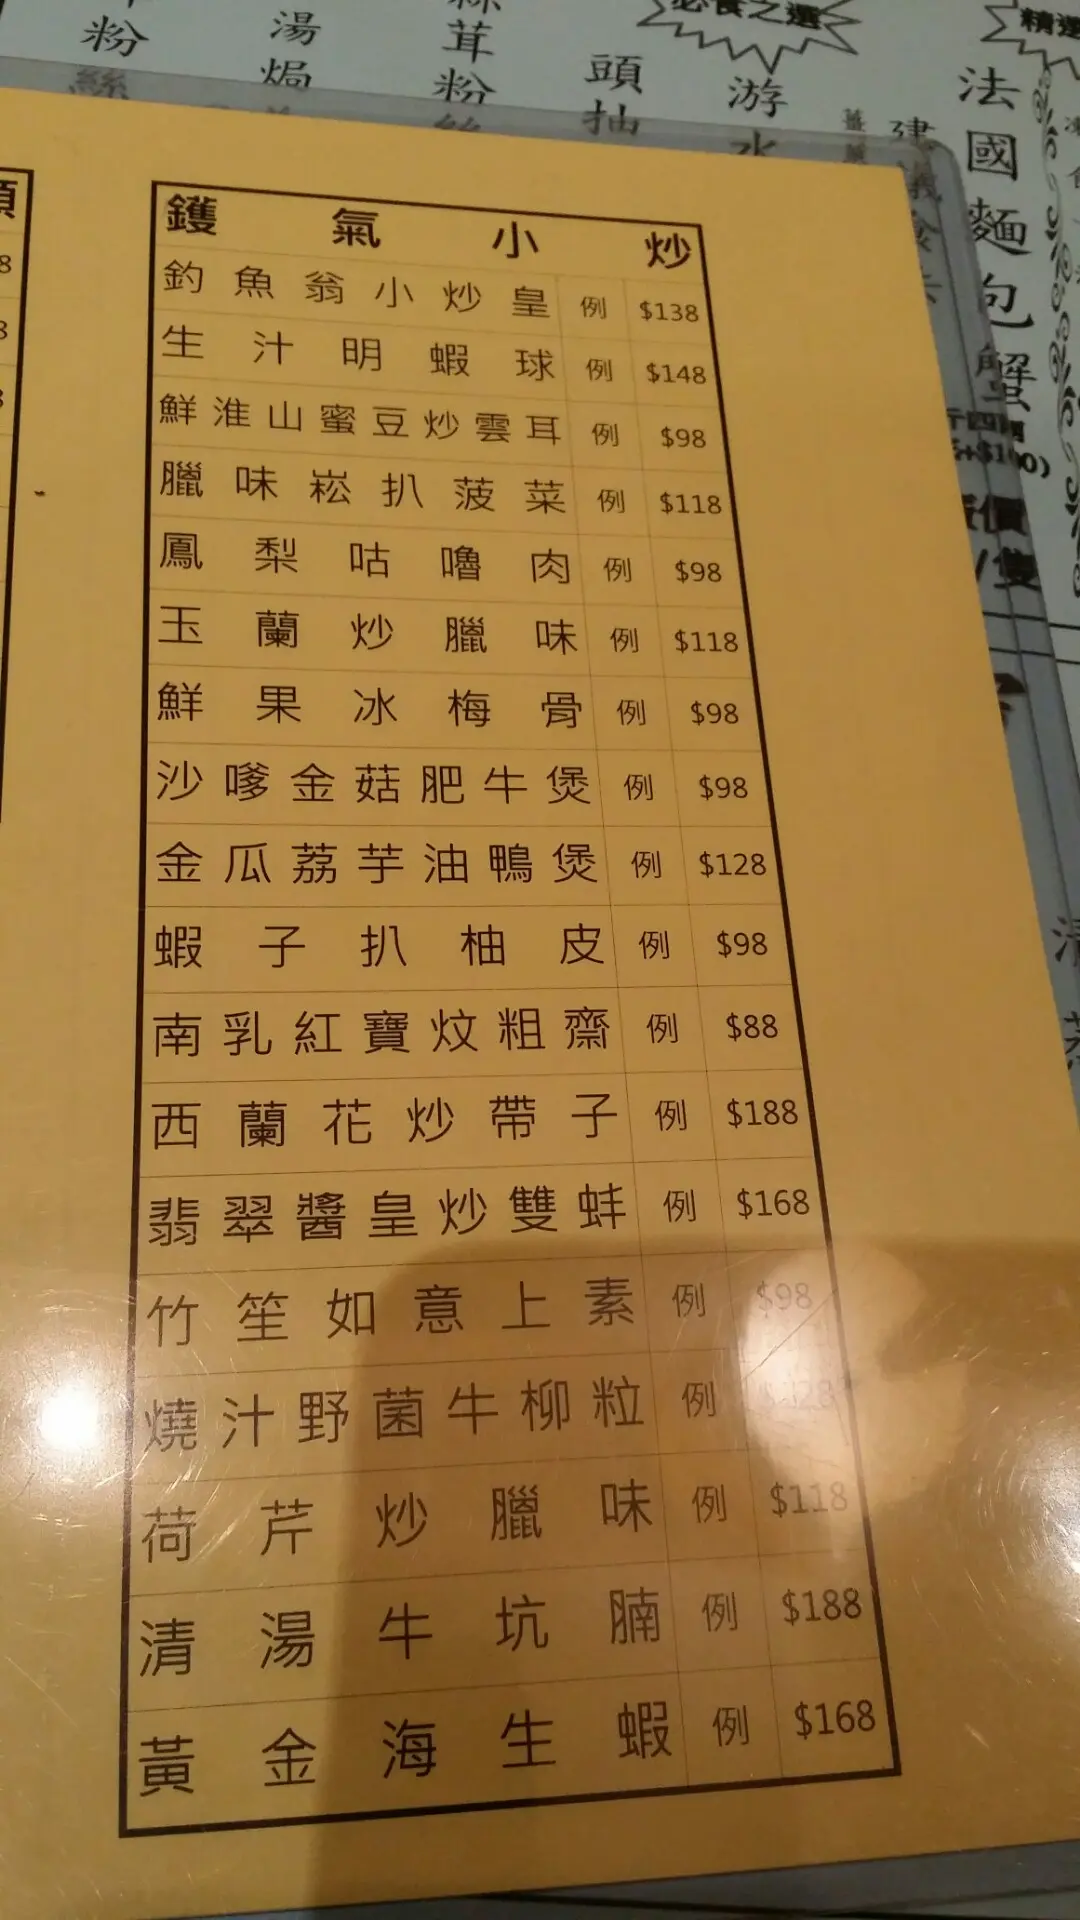 粉絲
湯焗
茸粉絲
頭抽
必食之選
游水
建議食法
精選
法國麵包蟹
鑊氣小炒
釣魚翁小炒皇 例 $138
生汁明蝦球 例 $148
鮮淮山蜜豆炒雲耳 例 $98
臘味崧扒菠菜 例 $118
鳳梨咕嚕肉 例 $98
玉蘭炒臘味 例 $118
鮮果冰梅骨 例 $98
沙嗲金菇肥牛煲 例 $98
金瓜荔芋油鴨煲 例 $128
蝦子扒柚皮 例 $98
南乳紅寶炆粗齋 例 $88
西蘭花炒帶子 例 $188
翡翠醬皇炒雙蚌 例 $168
竹笙如意上素 例 $98
燒汁野菌牛柳粒 例
荷芹炒臘味 例 $118
清湯牛坑腩 例 $188
黃金海生蝦 例 $168